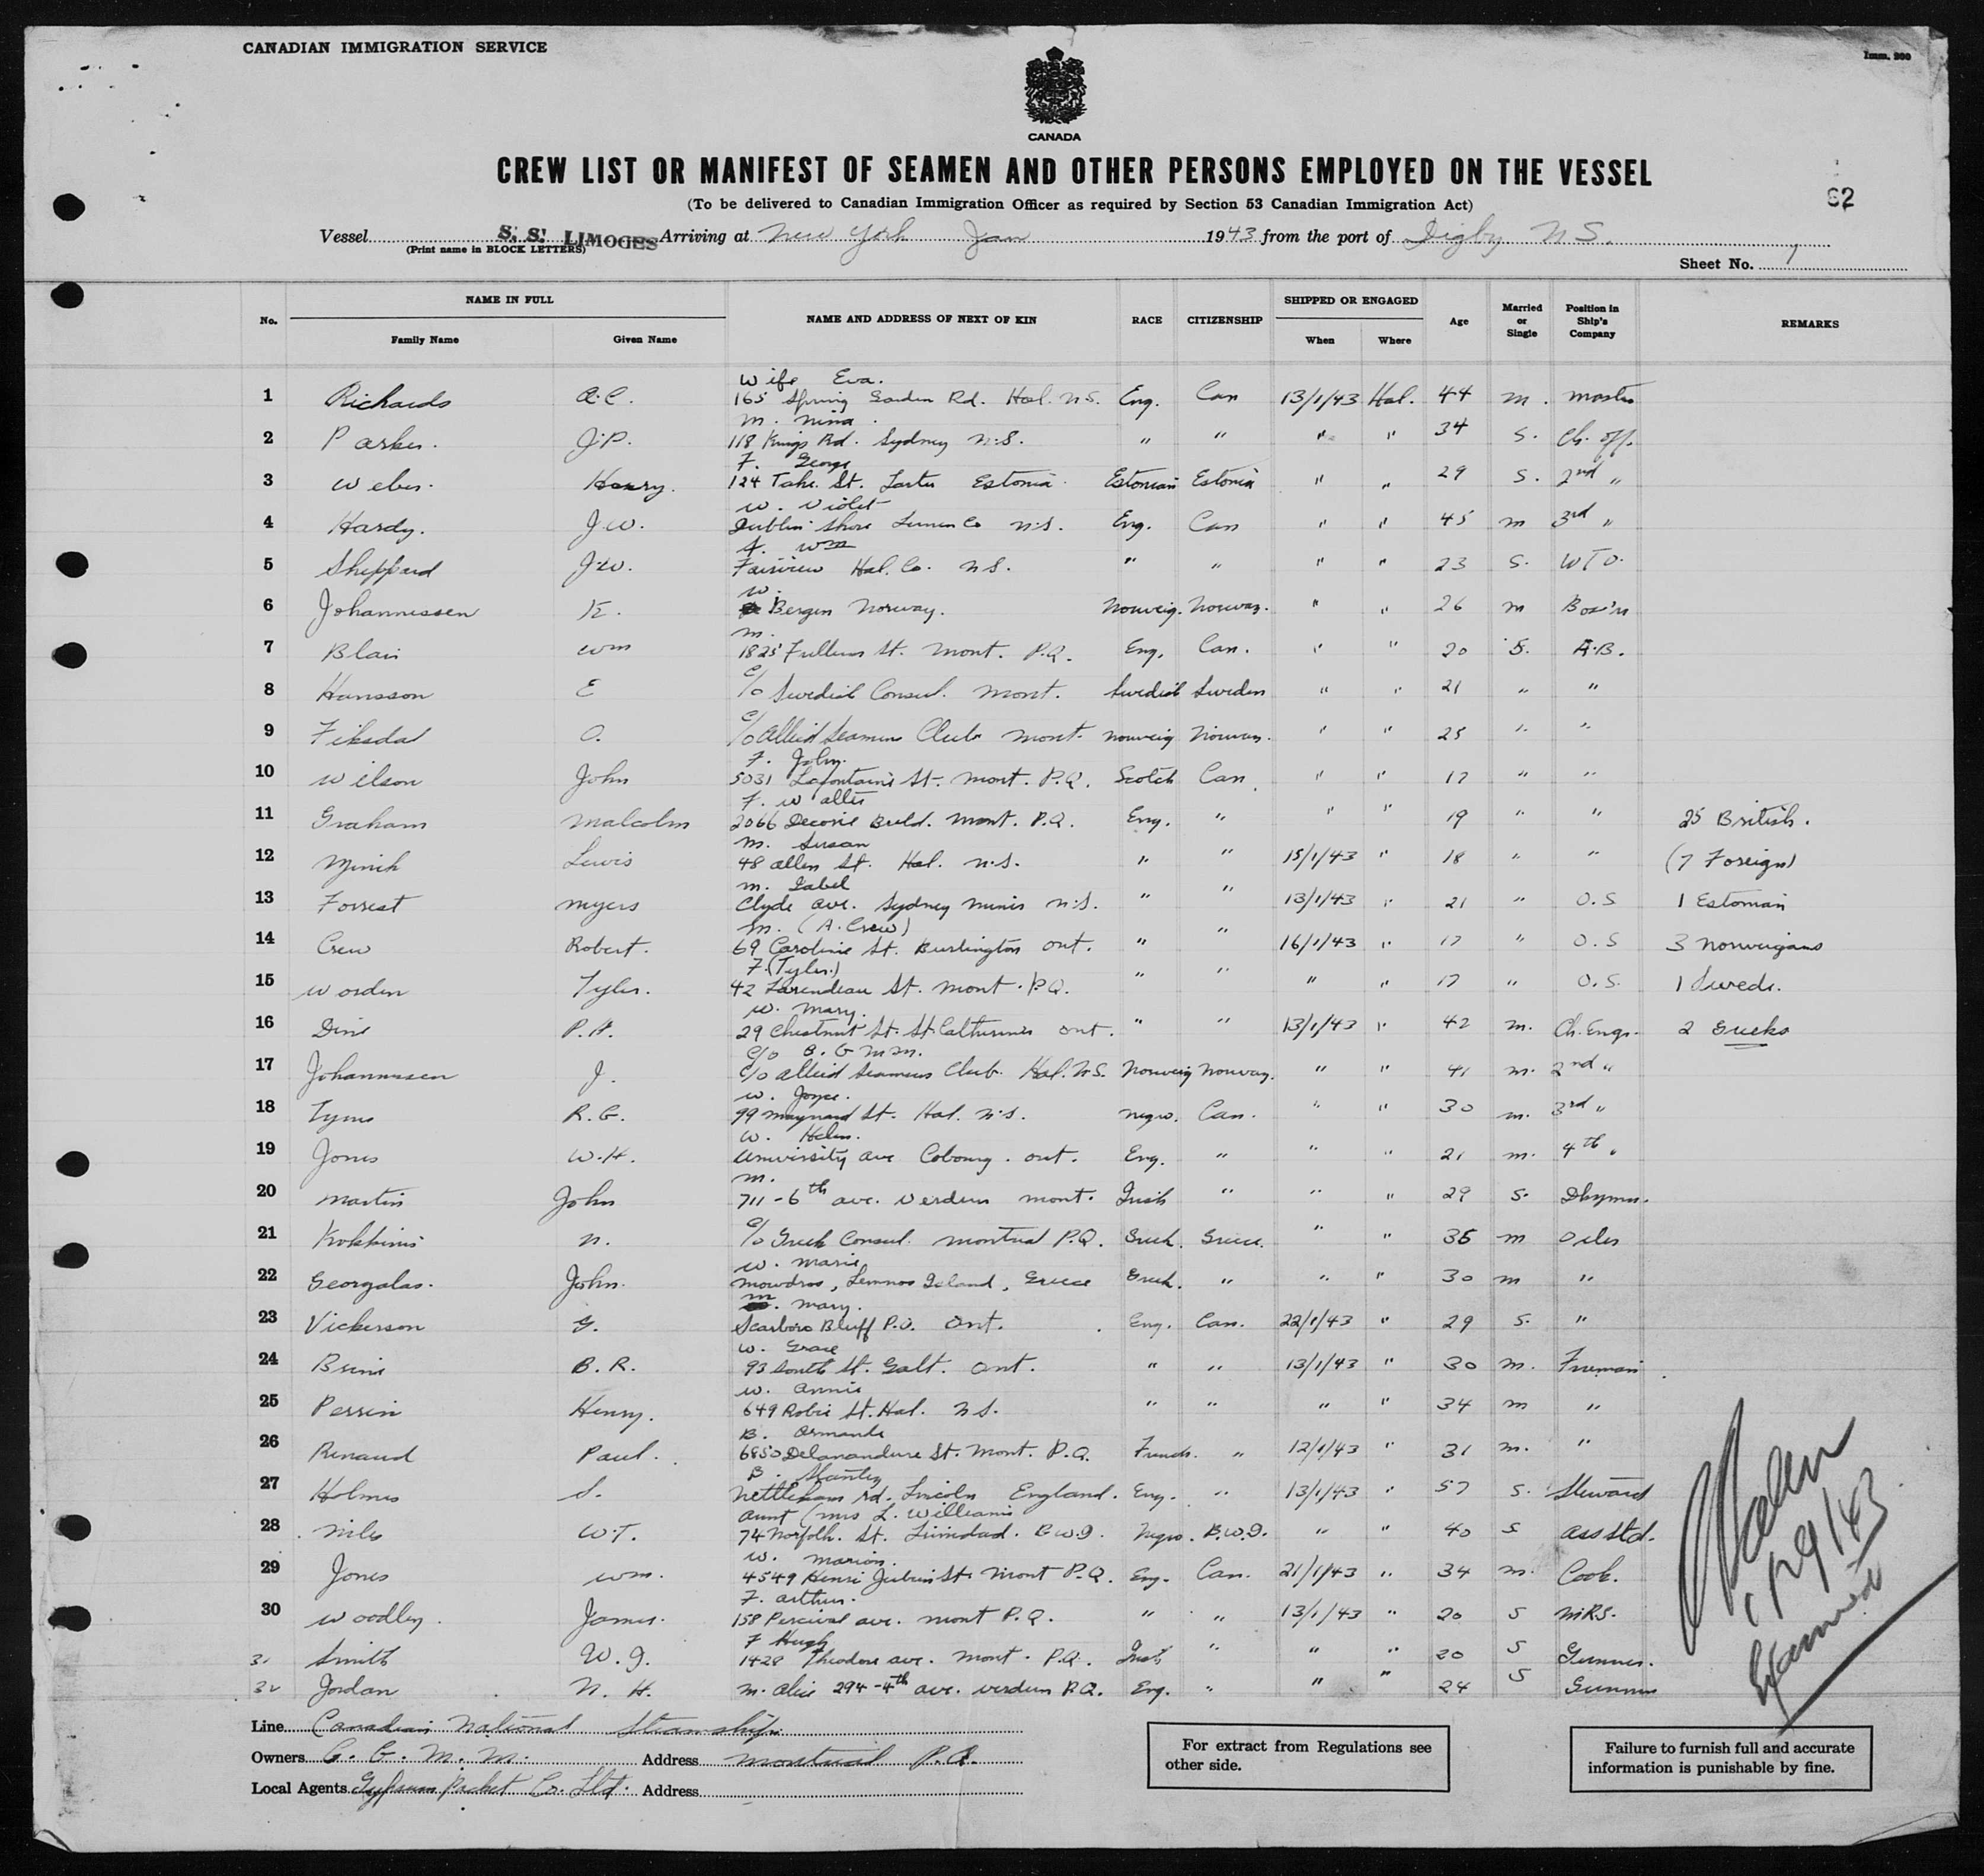 CANADIAN IMMIGRATION SERVICE
Imm. 200
CANADA
CREW LIST OR MANIFEST OF SEAMEN AND OTHER PERSONS EMPLOYED ON THE VESSEL
62
(To be delivered to Canadian Immigration Officer as required by Section 53 Canadian Immigration Act)
Vessel S. S. LIMOGES Arriving at New York Jan 1943 from the port of Digby N S.
(Print name in BLOCK LETTERS)
Sheet No. 1
No. NAME IN FULL NAME AND ADDRESS OF NEXT OF KIN RACE CITIZENSHIP SHIPPED OR ENGAGED Age Married or Single Position in Ship's Company REMARKS
Family Name Given Name When Where
Wife Eva.
1 Richards A.C. 165 Spring Garden Rd. Hal. N.S. Eng. Can 13/1/43 Hal. 44 m. master
m. nina.
2 Parker. J.P. 118 Kings Rd. Sydney N.S. " " " " 34 S. Ch. off.
F. George
3 Weber. Henry. 124 St. Estonia Estonian Estonia " " 29 S. 2nd "
W. Violet
4 Hardy. J.W. Dublin Shore Lunen Co N.S. Eng. Can " " 45 m 3rd "
F. Wm
5 Sheppard J.W. Fairview Hal. Co. N.S. " " " " 23 S. WTO.
W.
6 Johannessen K. Bergen Norway. Norweig. Norway. " " 26 m Bos'n
m.
7 Blair Wm 1825 Fullum St. Mont. P.Q. Eng. Can. " " 20 S. A.B.
8 Hansson E c/o Swedish Consul. Mont. Swedish Sweden " " 21 " "
9 Fiksdal O. c/o Allied Seamens Club Mont. Norweig Norway. " " 25 " "
F. John.
10 Wilson John 5031 Lafontaine St. Mont. P.Q. Scotch Can. " " 17 " "
F. Walter
11 Graham Malcolm 2066 Decarie Bvld. Mont. P.Q. Eng. " " " 19 " " 25 British.
m. Susan
12 Minik Lewis 48 Allen St. Hal. N.S. " " 15/1/43 " 18 " " (7 Foreign)
m. Isabel
13 Forrest Myers Clyde Ave. Sydney Mines N.S. " " 13/1/43 " 21 " O.S 1 Estonian
m. (A. Crew)
14 Crew Robert. 69 Caroline St. Burlington Ont. " " 16/1/43 " 17 " O.S 3 Norweigans
F. (Tyler.)
15 Worden Tyler. 42 St. Mont. P.Q. " " " " 17 " O.S. 1 Swede.
W. Mary.
16 Dine P.H. 29 Chestnut St. St. Catherines Ont. " " 13/1/43 " 42 m. Ch. Engr. 2 Greeks
c/o
17 Johannessen J. c/o Allied Seamens Club. Hal. N.S. Norweig Norway. " " 41 m. 2nd "
W. Joyce.
18 Tyns R.G. 99 Maynard St. Hal. N.S. Negro. Can. " " 30 m. 3rd "
W. Helen.
19 Jones W.H. University Ave Cobourg. Ont. Eng. " " " 21 m. 4th "
m.
20 Martin John 711-6th Ave. Verdun Mont. Irish " " " 29 S. Dkymn.
21 Kokkinis N. c/o Greek Consul. Montreal P.Q. Greek. Greece. " " 36 m Oiler
W. Marie
22 Georgalas. John. Mowdros, Lemnos Island, Greece Greek. " " " 30 m "
m. Mary.
23 Vickerson G. Scarboro Bluff P.O. Ont. Eng. Can. 22/1/43 " 29 S. "
W. Grace
24 Brine B.R. 93 South St. Galt. Ont. " " 13/1/43 " 30 m. Fireman
W. Annie
25 Perrin Henry. 649 Robie St. Hal. N.S. " " " " 34 m "
B.
26 Renaud Paul. 6850 St. Mont. P.Q. French. " 12/1/43 " 31 m. "
B. Stanley
27 Holmes S. Nettleham Rd. Lincoln England. Eng. " 13/1/43 " 57 S. Steward
Aunt (Mrs L. Williams
28 Niles W.T. 74 Norfolk. St. Trinidad. B.W.I. Negro. B.W.I. " " 40 S Ass Std.
W. Marion.
29 Jones Wm. 4549 Henri Julien St. Mont P.Q. Eng. Can. 21/1/43 " 34 m. Cook.
F. Arthur.
30 Woodley. James. 158 Percival Ave. Mont P.Q. " " 13/1/43 " 20 S MRS.
F Hugh
31 Smith W.J. 1428 Theodore Ave. Mont. P.Q. Irish " " " 20 S Gunner.
32 Jordan N. H. m. Alice 294-4th Ave. Verdun P.Q. Eng. " " " 24 S Gunner
1/29/43
Examined
Line Canadian National Steamships
Owners C. G. M. M. Address Montreal P.Q.
Local Agents Gypsum Packet Co. Ltd. Address
For extract from Regulations see other side.
Failure to furnish full and accurate information is punishable by fine.